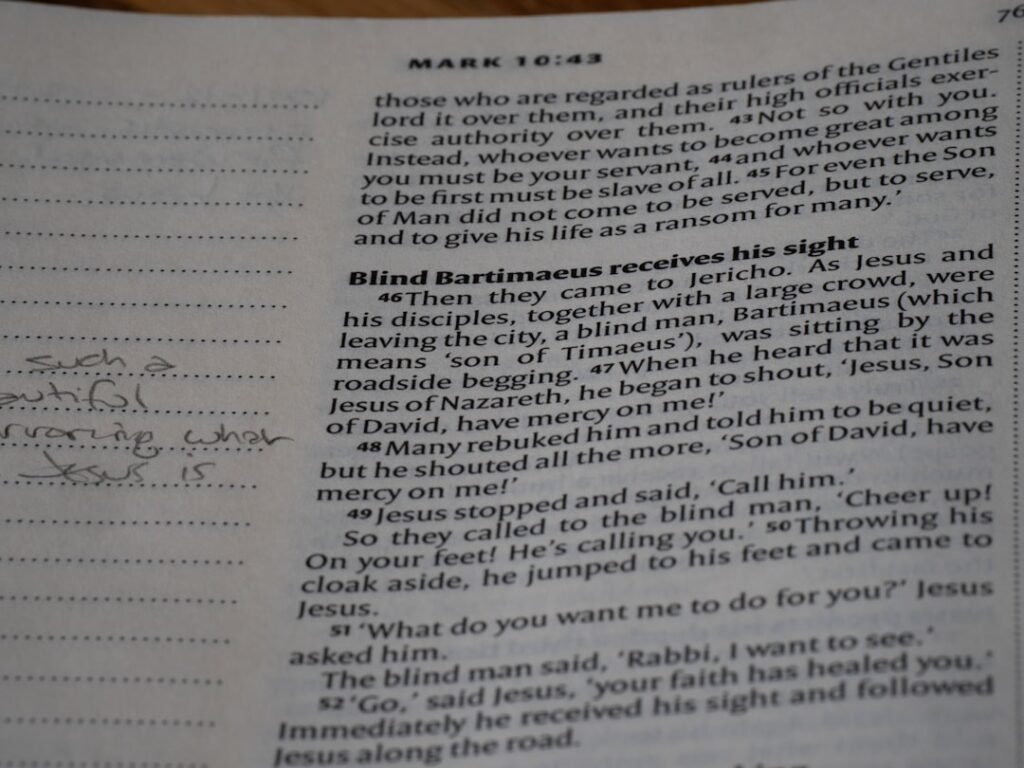 MARK 10:43
76
those who are regarded as rulers of the Gentiles
lord it over them, and their high officials exer-
cise authority over them. 43Not so with you.
Instead, whoever wants to become great among
you must be your servant, 44and whoever wants
to be first must be slave of all. 45For even the Son
of Man did not come to be served, but to serve,
and to give his life as a ransom for many.’
Blind Bartimaeus receives his sight
46Then they came to Jericho. As Jesus and
his disciples, together with a large crowd, were
leaving the city, a blind man, Bartimaeus (which
means ‘son of Timaeus’), was sitting by the
roadside begging. 47When he heard that it was
Jesus of Nazareth, he began to shout, ‘Jesus, Son
of David, have mercy on me!’
48Many rebuked him and told him to be quiet,
but he shouted all the more, ‘Son of David, have
mercy on me!’
49Jesus stopped and said, ‘Call him.’
So they called to the blind man, ‘Cheer up!
On your feet! He’s calling you.’ 50Throwing his
cloak aside, he jumped to his feet and came to
Jesus.
51‘What do you want me to do for you?’ Jesus
asked him.
The blind man said, ‘Rabbi, I want to see.’
52‘Go,’ said Jesus, ‘your faith has healed you.’
Immediately he received his sight and followed
Jesus along the road.
such a
autiful
what
Jesus is